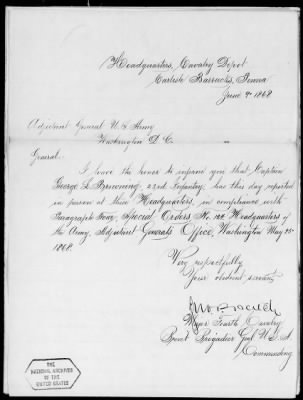 Headquarters, Cavalry Depot
Carlisle Barracks, Penna
June 9th 1868
Adjutant General U. S. Army
Washington D. C.
General.
I have the honor to inform you that Captain
George L. Browning, 22nd Infantry, has this day reported
in person at these Headquarters, in compliance with
Paragraph Four, Special Orders, No. 122 Headquarters of
the Army, Adjutant Generals Office, Washington May 25th
1868.
Very respectfully
Your obedient servant
Major Fourth Cavalry
Brevet Brigadier Genl U.S.A.
Commanding
THE
NATIONAL ARCHIVES
OF THE
UNITED STATES